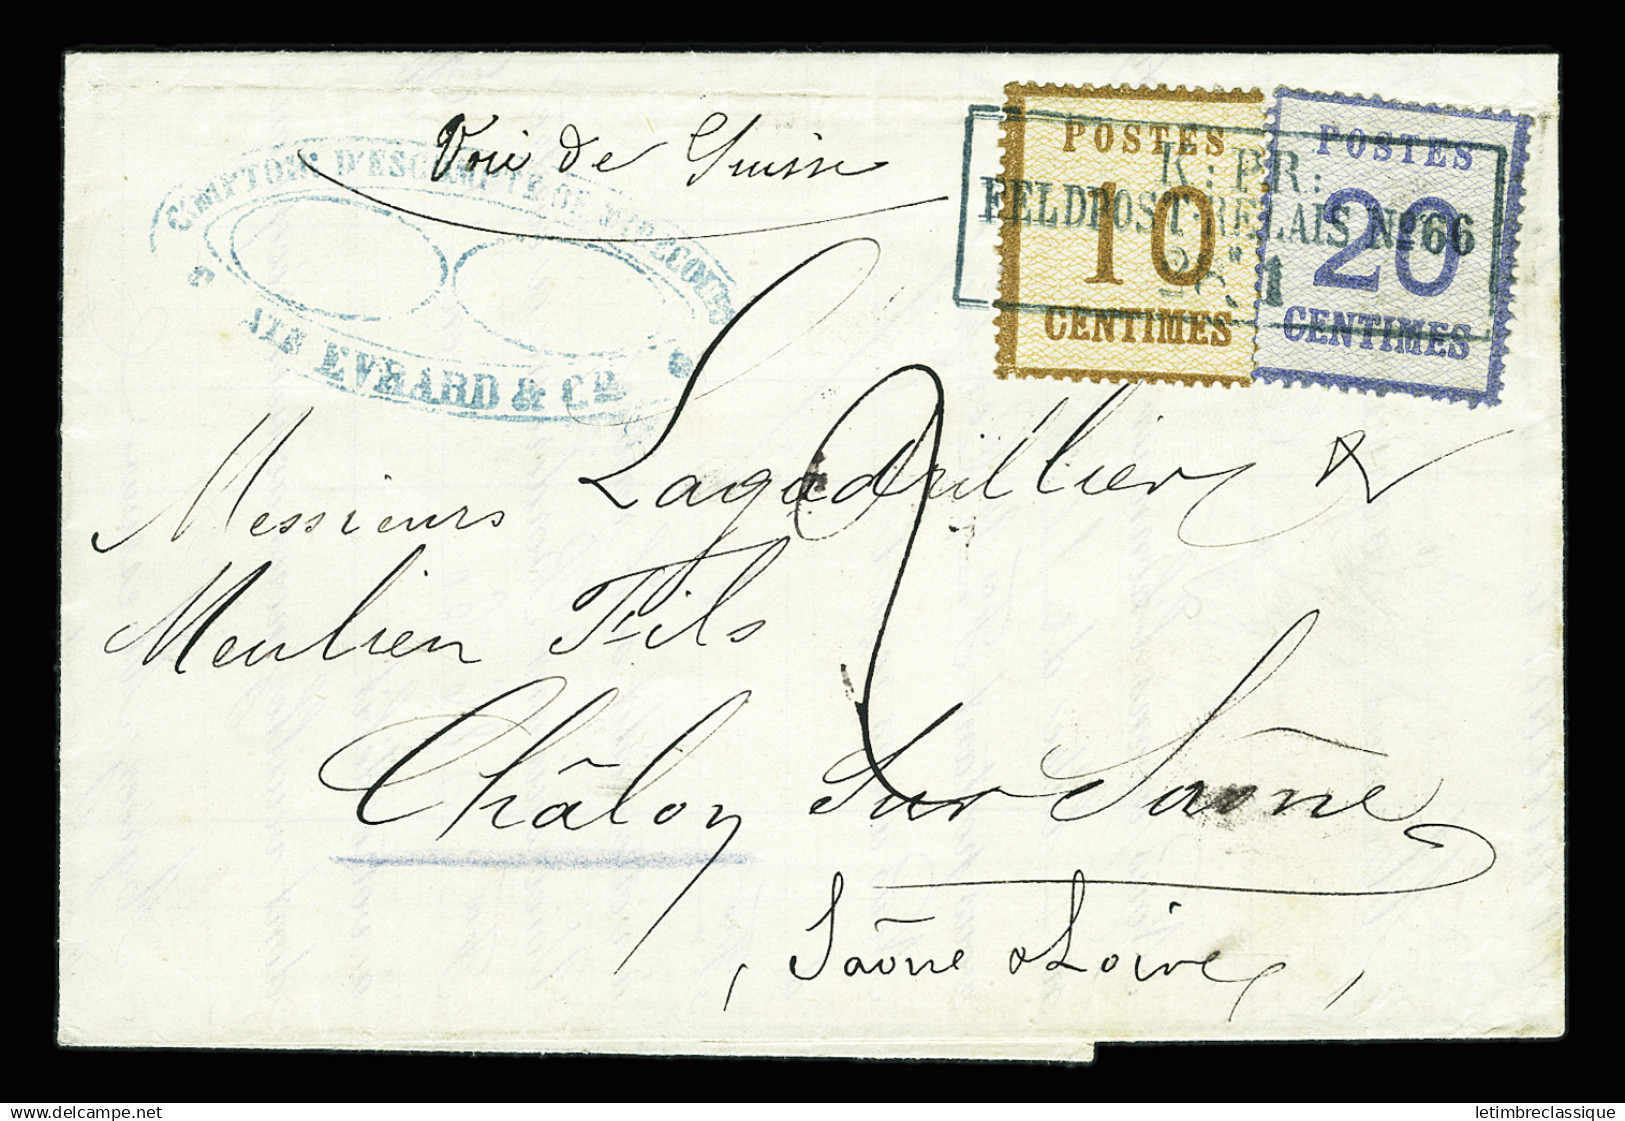 Voie de Suisse
COMPTOIR D'ESCOMPTE DE MIRECOURT
EVRARD & CIE
POSTES
10
CENTIMES
POSTES
20
CENTIMES
K: PR:
FELDPOST-RELAIS No 66
1
2
Messieurs Lagodrillier &
Meulien Fils
Châlon sur Saône
Saône & Loire
delcampe.net
letimbreclassique